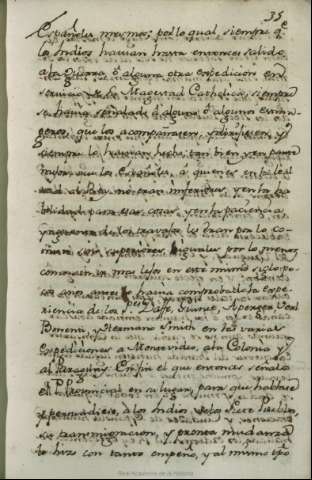 35
Españoles mesmos; por lo qual, siempre qe
los Indios havian hasta entonces salido
a la Guerra, ô alguna otra expedicion en
servicio de la Magestad Catholica, siempre
se havia señalado ô alguno ô algunos estran-
geros, que los acompañasen, y dirigiesen, y
siempre lo havian hecho tan bien y en parte
mejor que los Españoles, a quienes en la leal-
tad al Rey no eran inferiores, y en la ha-
bilidad para esas cosas, y en la paciencia
y tolerancia de los trabajos les eran por lo co-
mun superiores, ô iguales por lo menos,
como aun mas lejos en este mismo siglo po-
cos años antes lo havia comprobado la expe-
riencia de los PPes
Bonenti, y Hermano Smith en las varias
expediciones a Montevideo, a la Colonia y
al Paraguay. En fin el que entonces señalò
el P. Provincial en su lugar, para que hablase
y persuadiese, a los Indios de los Siete Pueblos,
su transmigracion, y pronta mudanza,
lo hizo con tanto empeño, y al mismo tpo
Real Academia de la Historia